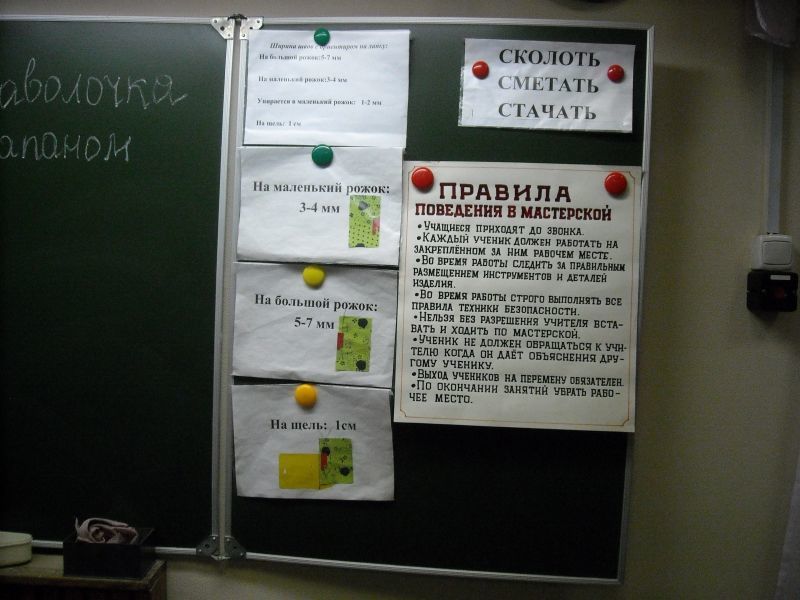 аволочка
апаном
Ширина швов с ориентиром на лапку:
На большой рожок:5-7 мм
На маленький рожок:3-4 мм
Упирается в маленький рожок: 1-2 мм
На щель: 1 см
На маленький рожок:
3-4 мм
На большой рожок:
5-7 мм
На щель: 1см
СКОЛОТЬ
СМЕТАТЬ
СТАЧАТЬ
ПРАВИЛА
ПОВЕДЕНИЯ В МАСТЕРСКОЙ
•Учащиеся приходят до звонка.
•Каждый ученик должен работать на
закреплённом за ним рабочем месте.
•Во время работы следить за правильным
размещением инструментов и деталей
изделия.
•Во время работы строго выполнять все
правила техники безопасности.
•Нельзя без разрешения учителя вста-
вать и ходить по мастерской.
•Ученик не должен обращаться к учи-
телю когда он даёт объяснения дру-
гому ученику.
•Выход учеников на перемену обязателен.
•По окончании занятий убрать рабо-
чее место.